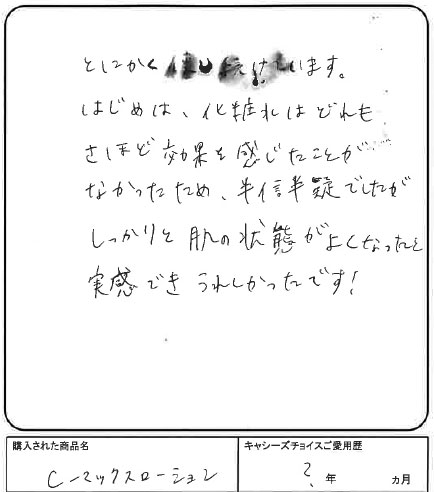 とにかく使い続けています。
はじめは、化粧水はどれも
さほど効果を感じたことが
なかったため、半信半疑でしたが
しっかりと肌の状態がよくなったと
実感できうれしかったです!
購入された商品名
C-マックスローション
キャシーズチョイスご愛用歴
? 年 ヵ月